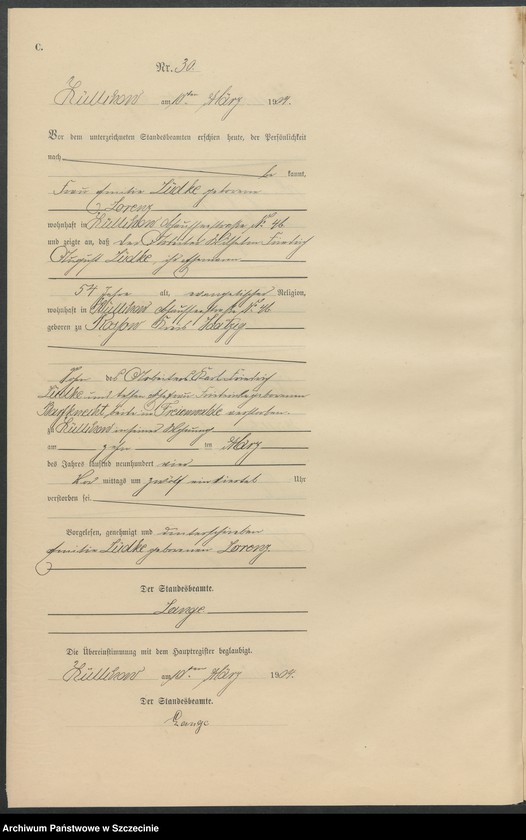 C.
Nr. 30.
Züllchow am 10ten März 1904.
Vor dem unterzeichneten Standesbeamten erschien heute, der Persönlichkeit
nach
be kannt,
Frau Emilie Lüdke geborene
Lorenz
wohnhaft in Züllchow Chausseestraße No 46
und zeigte an, daß der Arbeiter Wilhelm Friedrich
August Lüdke, ihr Ehemann
54 Jahre alt, evangelischer Religion,
wohnhaft in Züllchow Chausseestraße No 46
geboren zu Kreis
Sohn des Arbeiters Karl Friedrich
Lüdke und dessen Ehefrau geborenen
beide in Freienwalde verstorben
zu Züllchow in seiner Wohnung
am zehn ten März
des Jahres tausend neunhundert vier
Vor mittags um zwölf einviertel Uhr
verstorben sei.
Vorgelesen, genehmigt und unterschrieben
Emilie Lüdke geborenen Lorenz.
Der Standesbeamte.
Lange
Die Übereinstimmung mit dem Hauptregister beglaubigt.
Züllchow am 10ten März 1904.
Der Standesbeamte.
Lange
Archiwum Państwowe w Szczecinie